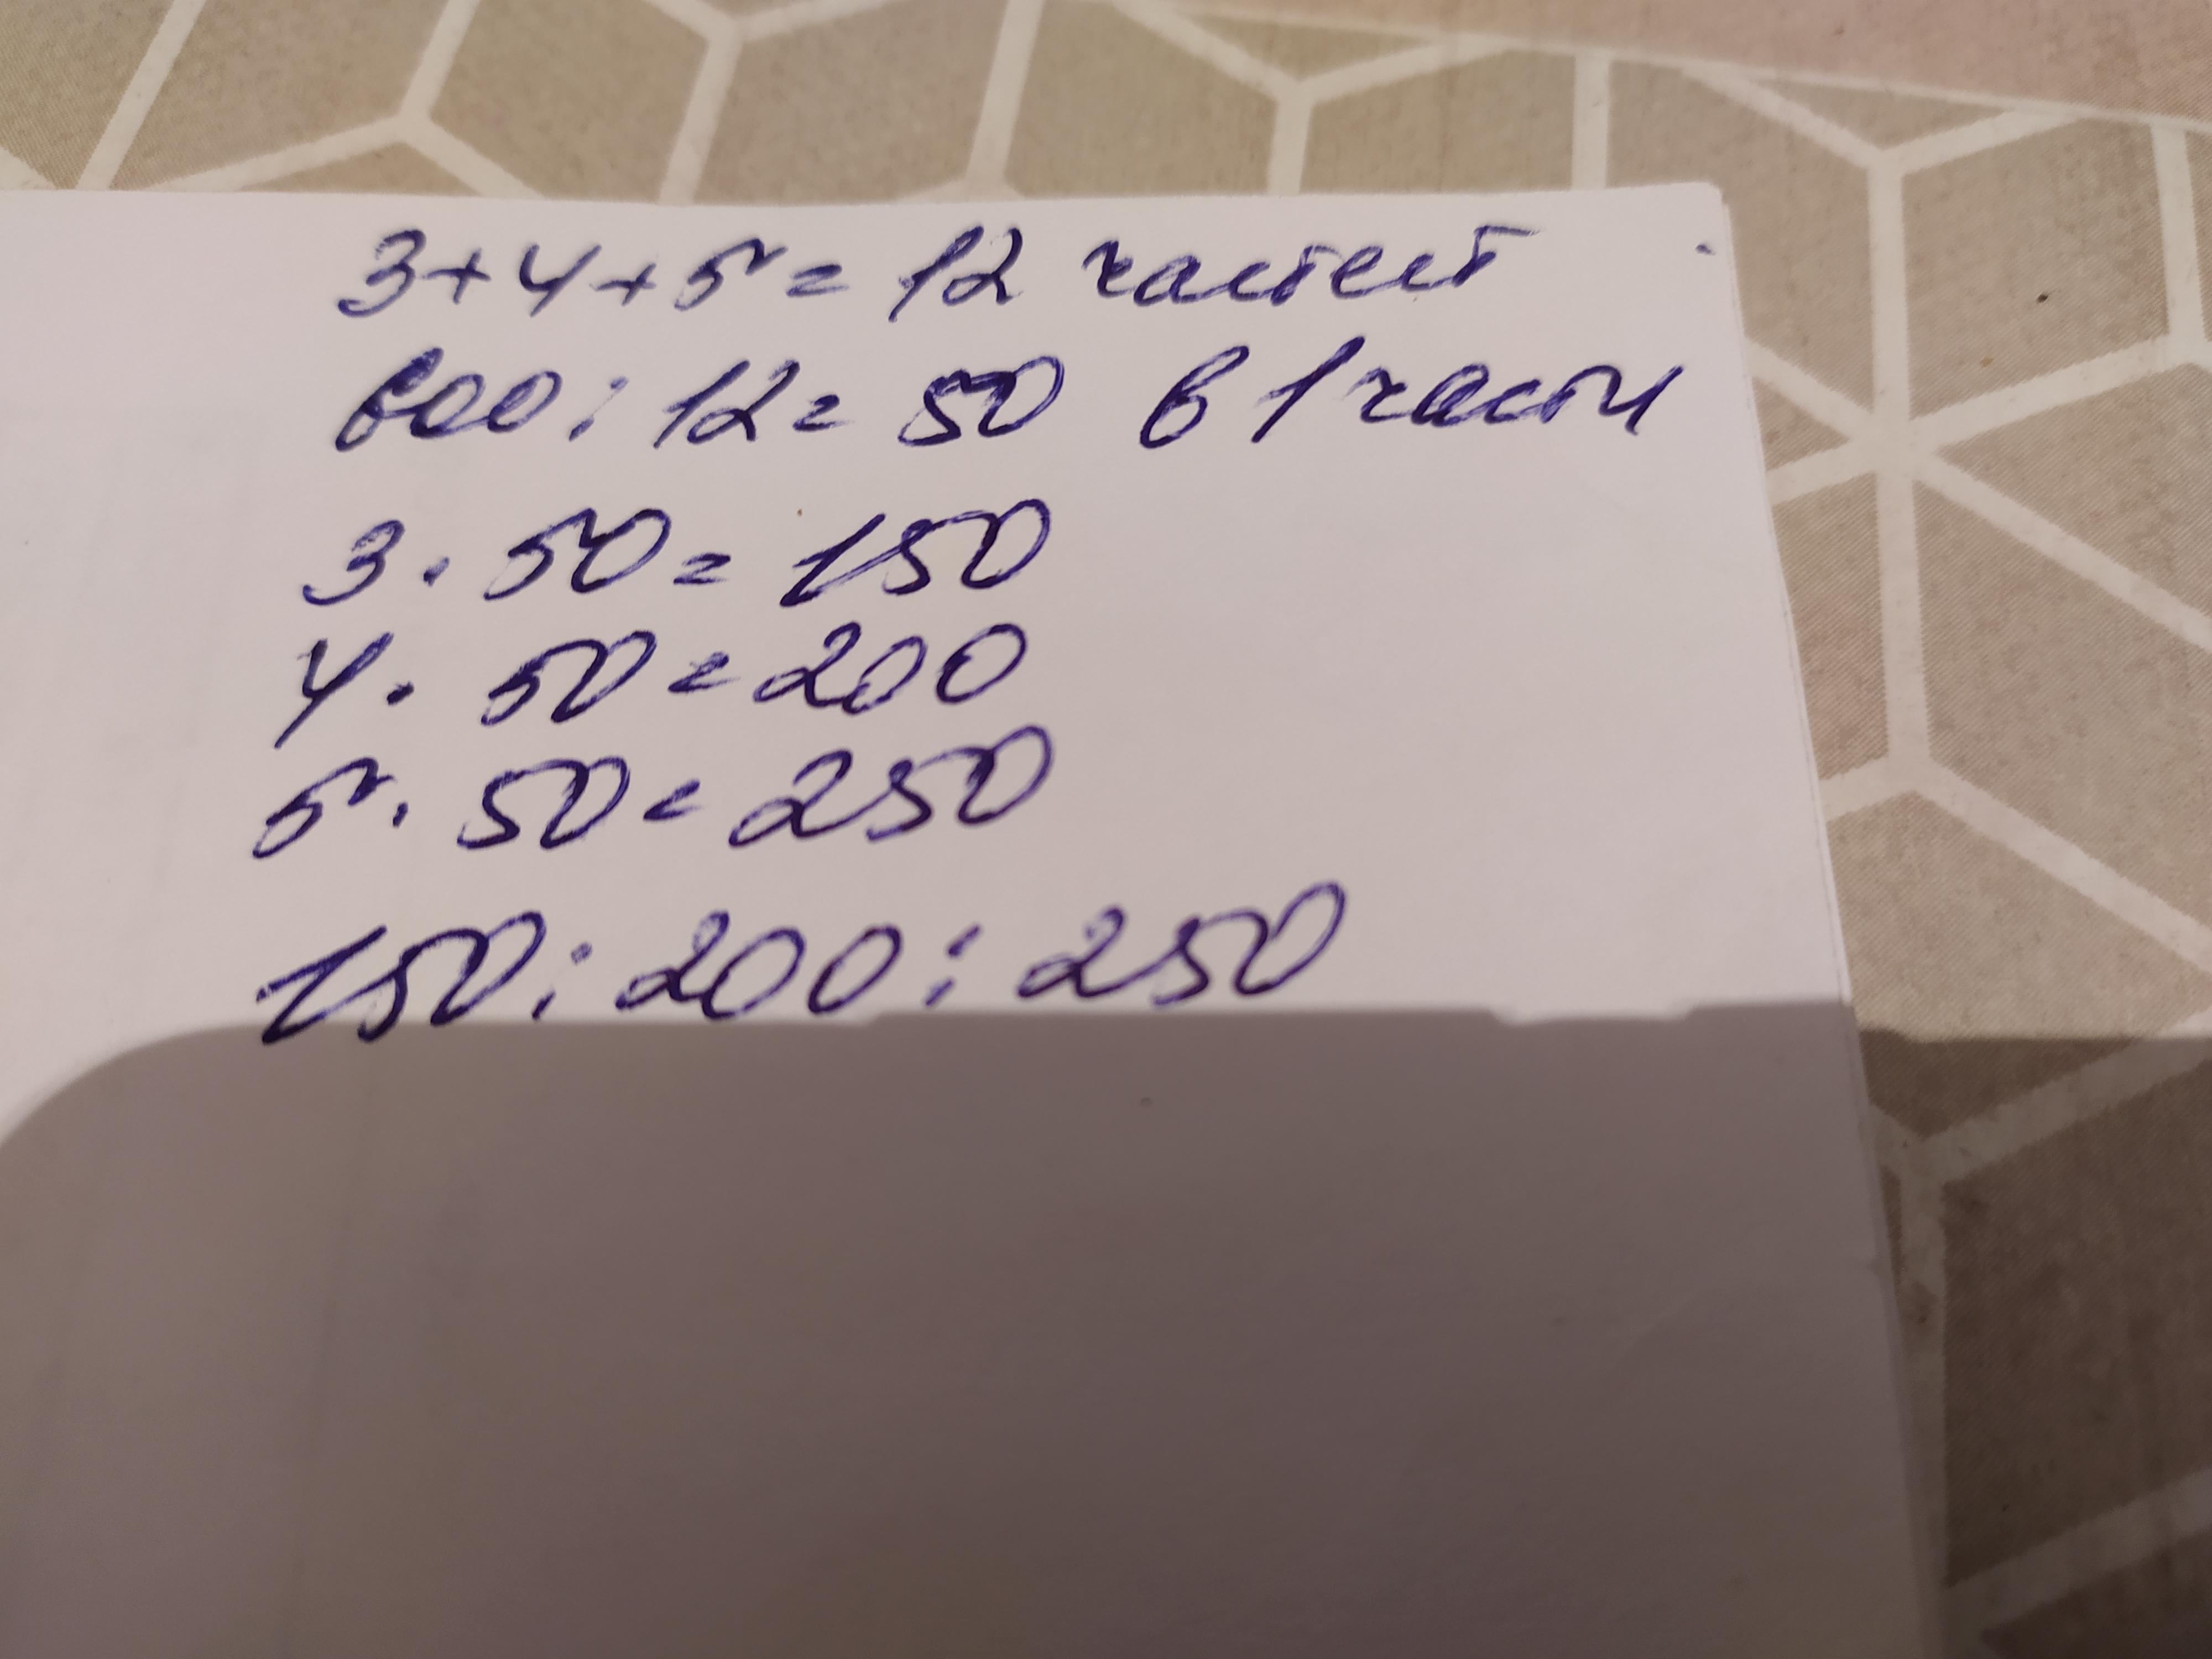 3+4+5=12 частей
600:12=50 в 1 части
3·50=150
4·50=200
5·50=250
150:200:250